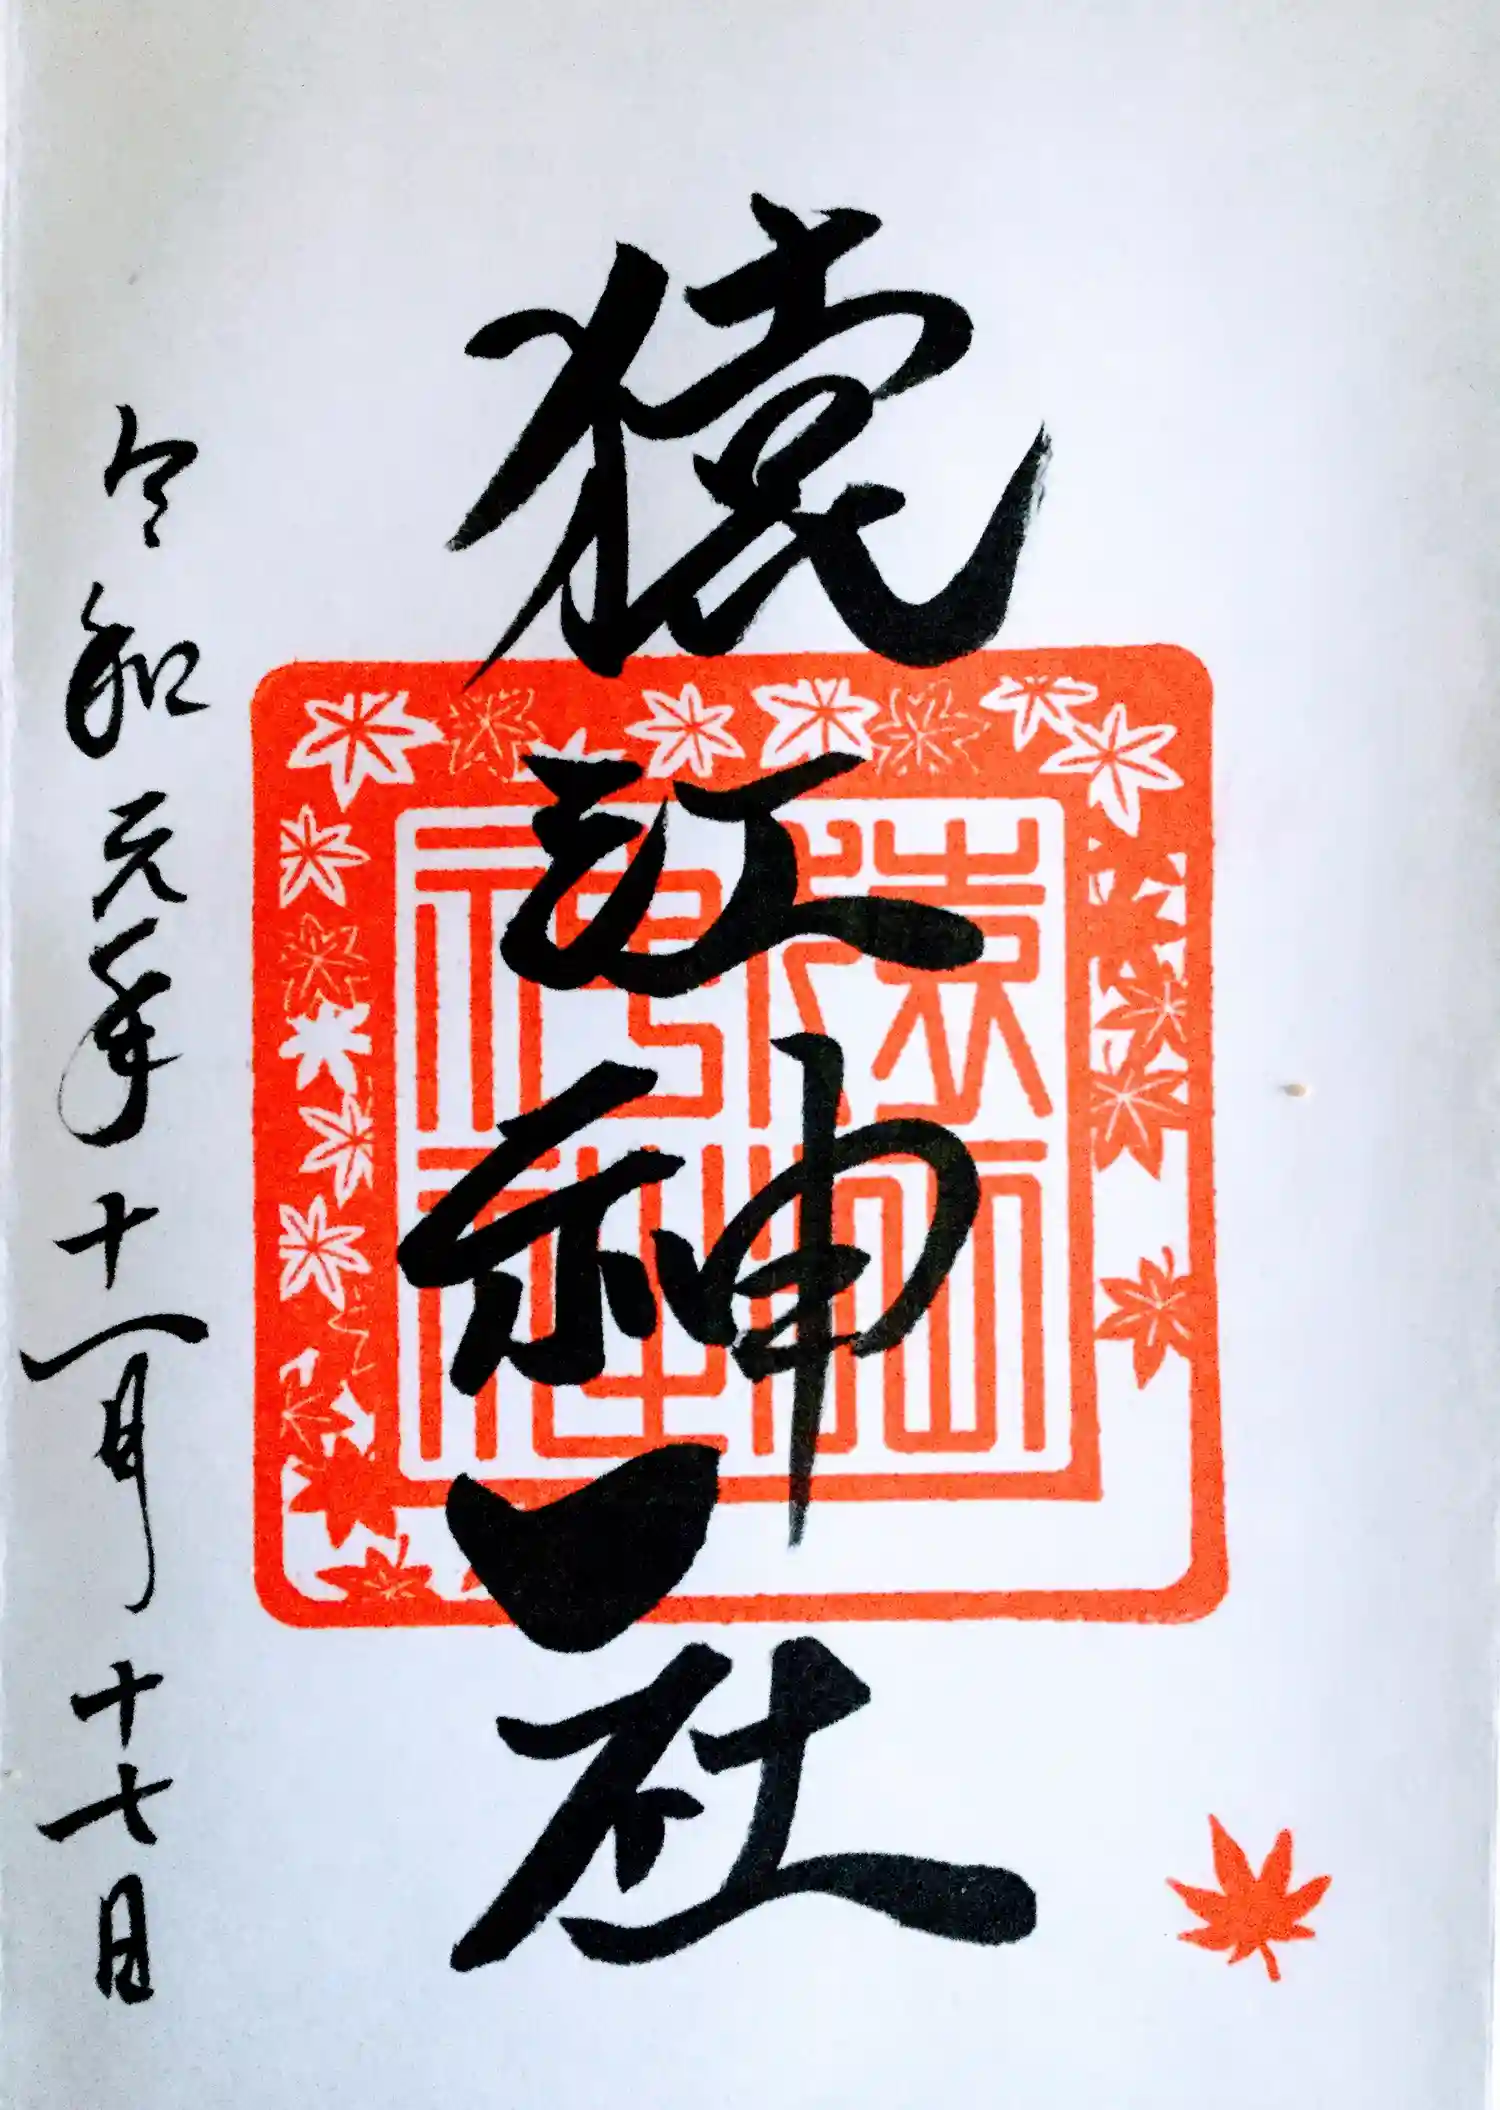 猿江神社
令和元年十一月十七日
猿江
神社